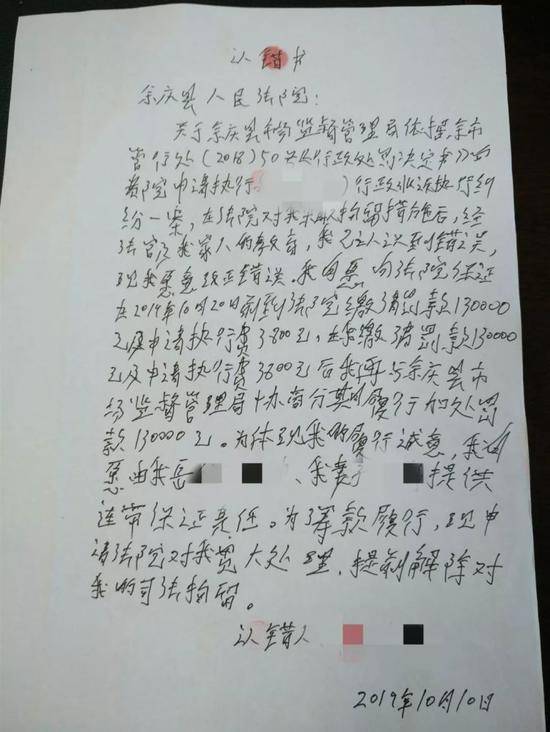 认错书
余庆县人民法院：
关于余庆县市场监督管理局依据余市
监行处（2018）50号《行政处罚决定书》向
贵院申请执行 ）行政非诉执行纠
纷一案，在法院对我采取拘留措施后，经
法官及我家人的教育，我已认识到错误，
现我愿意改正错误。我自愿向法院保证
在2019年10月20日前到法院缴清罚款130000
元及申请执行费3800元，在缴清罚款130000
元及申请执行费3800元后我再与余庆县市
场监督管理局协商分期履行加处罚
款130000元。为体现我的履行诚意，我自
愿由我岳 、我妻 提供
连带保证责任。为筹款履行，现申
请法院对我宽大处理，提前解除对
我的司法拘留。
认错人
2019年10月10日